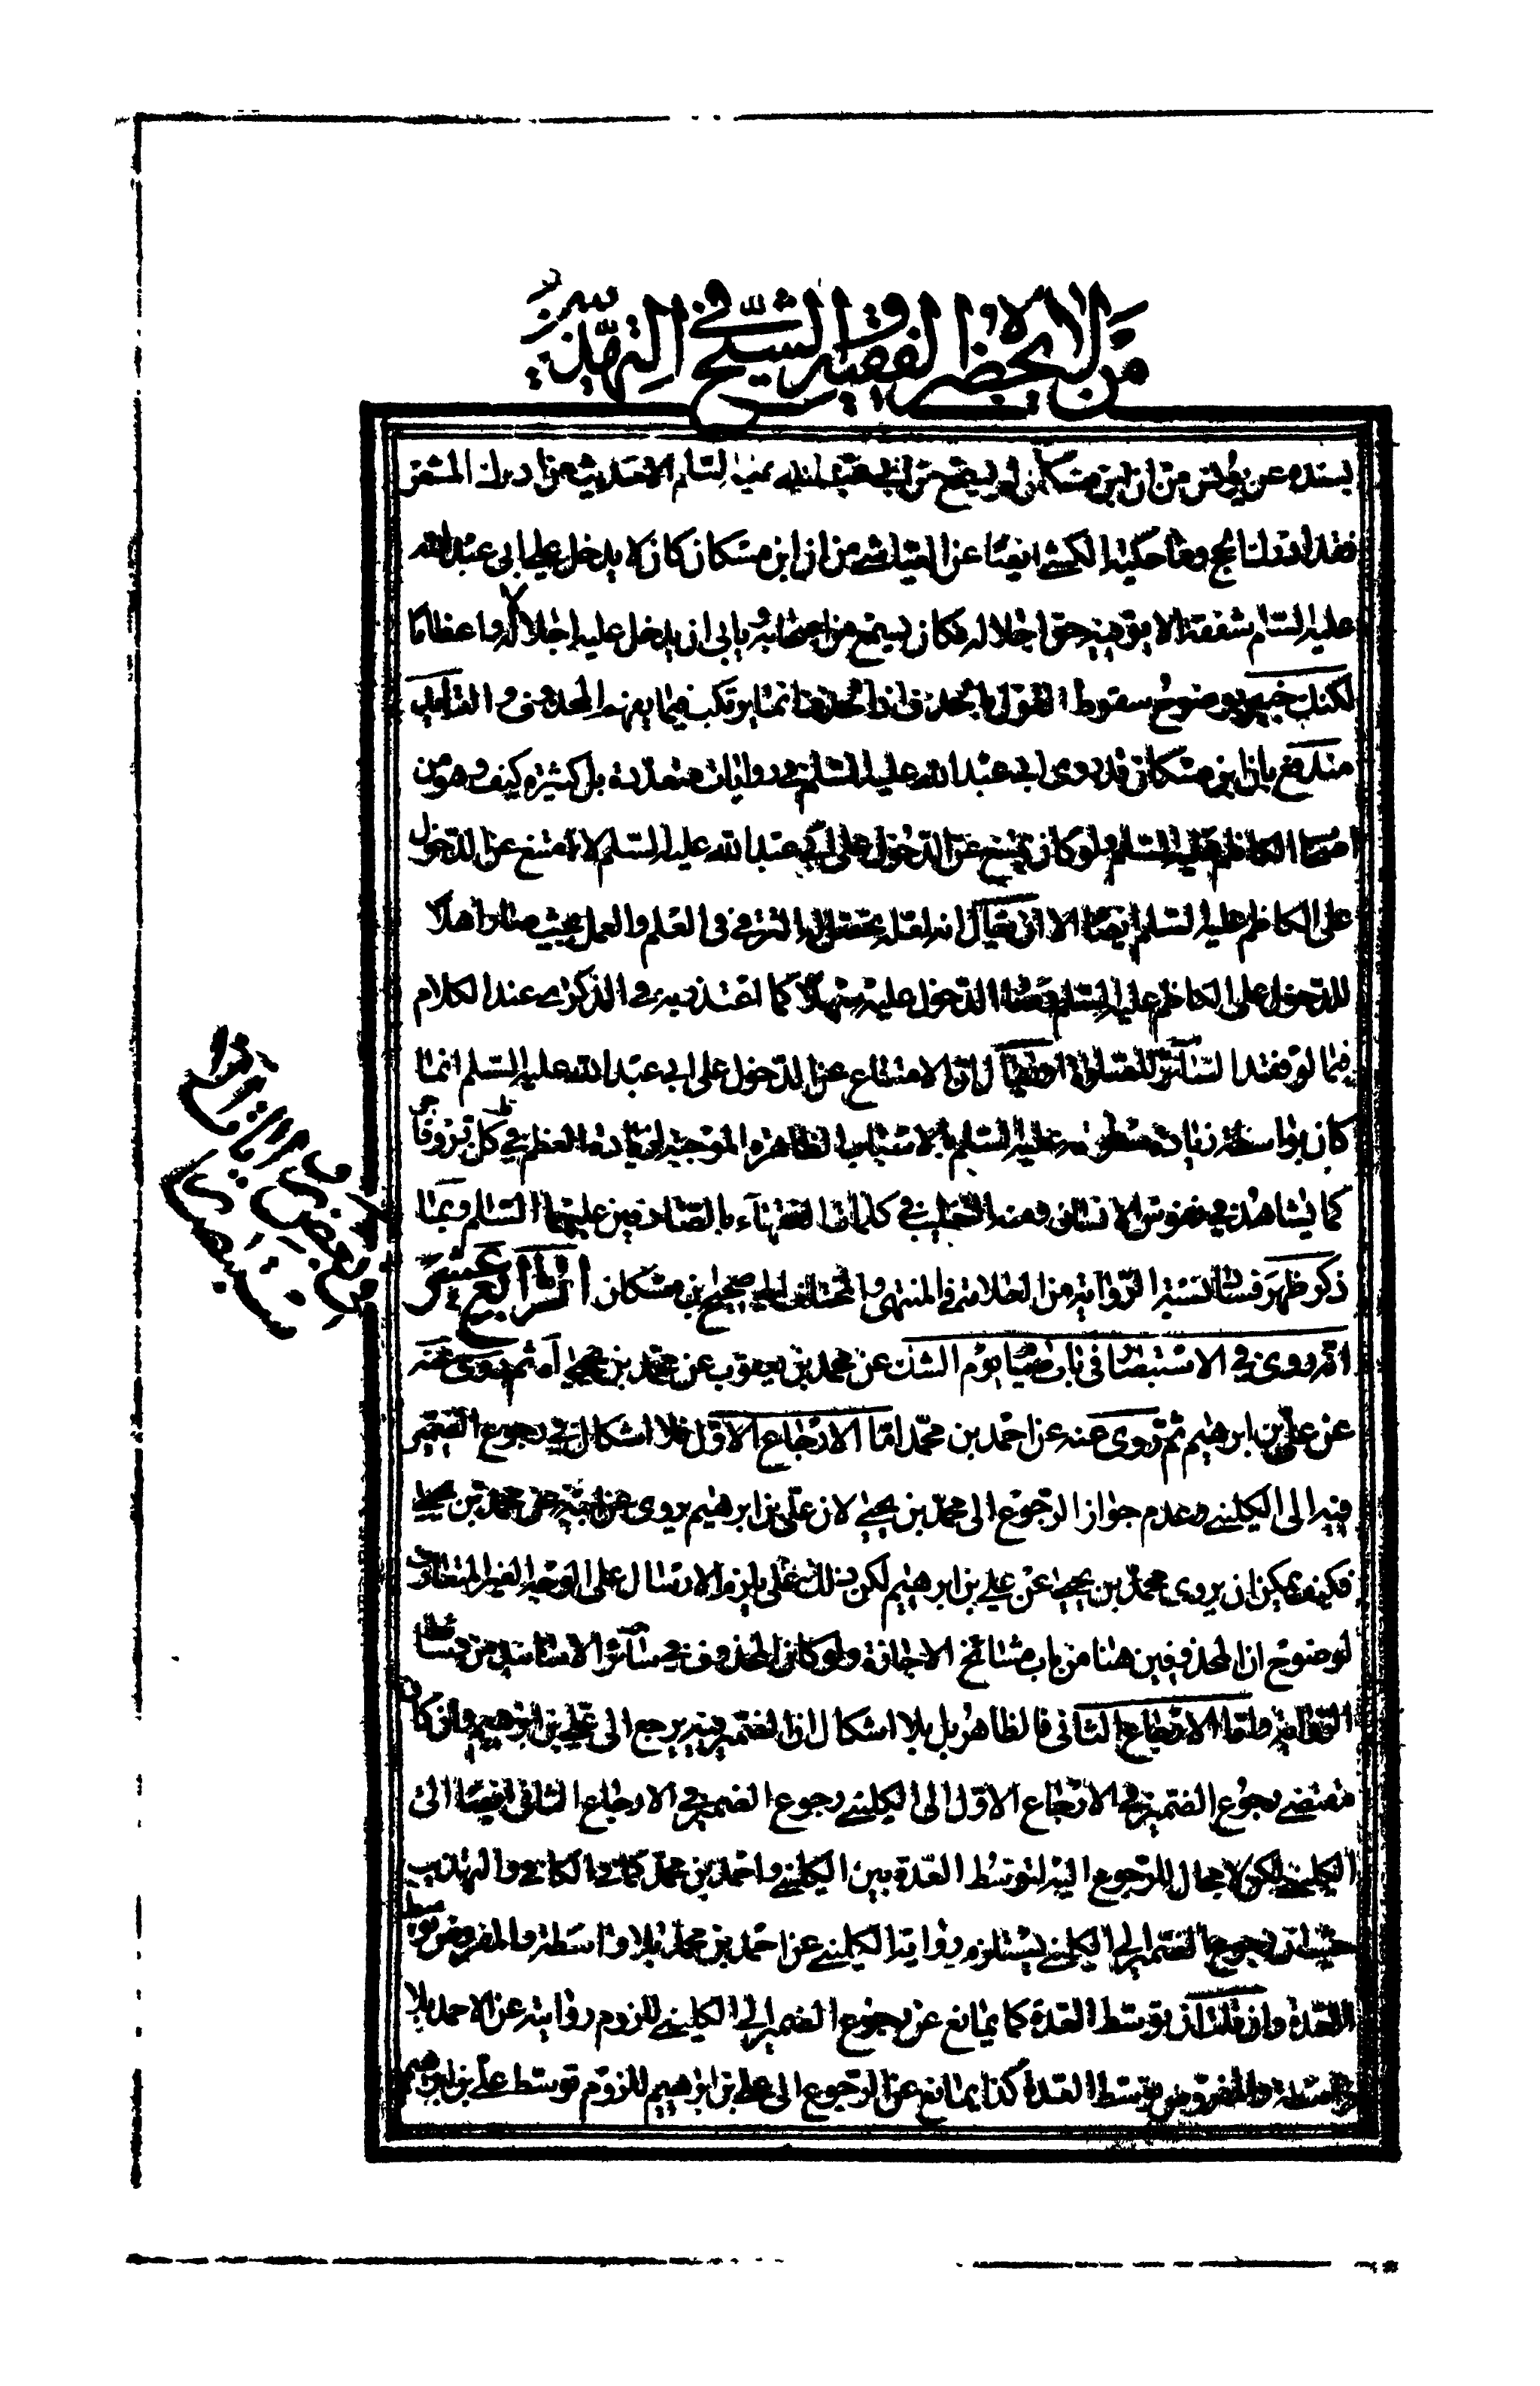 من لا يحضره الفقيه والشيخ في التهذيبين
بسنده عن يونس من ان ابن مسكان لم يسمع من ابي عبد الله عليه السلم الا حديث من ادرك المشعر
فقد ادرك الحج وما حكيه الكشي ايضا عن العياشي من ان ابن مسكان كان لا يدخل على ابي عبد الله
عليه السلم شفقة الا يوفيه حق اجلاله فكان يسمع من اصحابه ويابى ان يدخل عليه اجلالا له واعظاما
لكنك خبير بوضوح سقوط القول بالحذف اذ الحذف انما يرتكب فيما يفهم المحذوف والتاييد
مندفع بان ابن مسكان قد روى ابي عبد الله عليه السلم في روايات متعددة بل كثيرة كيف وهو من
اصحاب الكاظم عليه السلم ولو كان يمتنع عن الدخول على ابي عبد الله عليه السلم لامتنع عن الدخول
على الكاظم عليه السلم ايضا الا ان يقال انه لعله تحصل له الترقي في العلم والعمل بحيث صار اهلا
للدخول على الكاظم عليه السلم وهذا الدخول عليه سهلا كما اعتذر به في الذكرى عند الكلام
فيما لو فقد الساتر للصلوة او يقال ان الامتناع عن الدخول على ابي عبد الله عليه السلم انما
كان بواسطة زيادة سطوته عليه السلم بالاسباب الظاهرة الموجبة لزيادة العظم في كل
كما يشاهد في نفوس الانسان ومنه التعبير في كلمات الفقهاء بالصادقين عليهما السلم وبما
ذكر ظهر فساد نسبة الرواية من العلامة في المنتهى والمختلف الى صحيح ابن مسكان الرابع عشر
انه روى في الاستبصار في باب صيام يوم الشك عن محمد بن يعقوب عن محمد بن يحيى اه ثم روى عنه
عن علي بن ابرهيم ثم روى عنه عن احمد بن محمد اما الارجاع الاول فلا اشكال في رجوع الضمير
فيه الى الكليني وعدم جواز الرجوع الى محمد بن يحيى لان علي بن ابرهيم يروي عن ابيه عن محمد بن يحيى
فكيف يمكن ان يروي محمد بن يحيى عن علي بن ابرهيم لكن يلزم الارسال على الوجه الغير المتعارف
لوضوح ان المحذوفين هنا من باب مشائخ الاجازة ولو كان المحذوف في سائر الاسانيد من
واما الارجاع الثاني فالظاهر بل بلا اشكال ان الضمير فيه يرجع الى علي بن ابرهيم وان كان
مقتضى رجوع الضمير في الارجاع الاول الى الكليني رجوع الضمير في الارجاع الثاني ايضا الى
الكليني لكن لا مجال للرجوع اليه لتوسط العدة بين الكليني واحمد بن محمد كما في الكافي والتهذيب
حيث ان رجوع الضمير الى الكليني يستلزم رواية الكليني عن احمد بن محمد بلا واسطة والمفروض توسط
العدة وان قلت ان توسط العدة كما يمانع عن رجوع الضمير الى الكليني للزوم روايته عن الاحمد بلا
واسطة والمفروض توسط العدة كذا يمانع عن الرجوع الى علي بن ابرهيم للزوم توسط علي بن ابرهيم